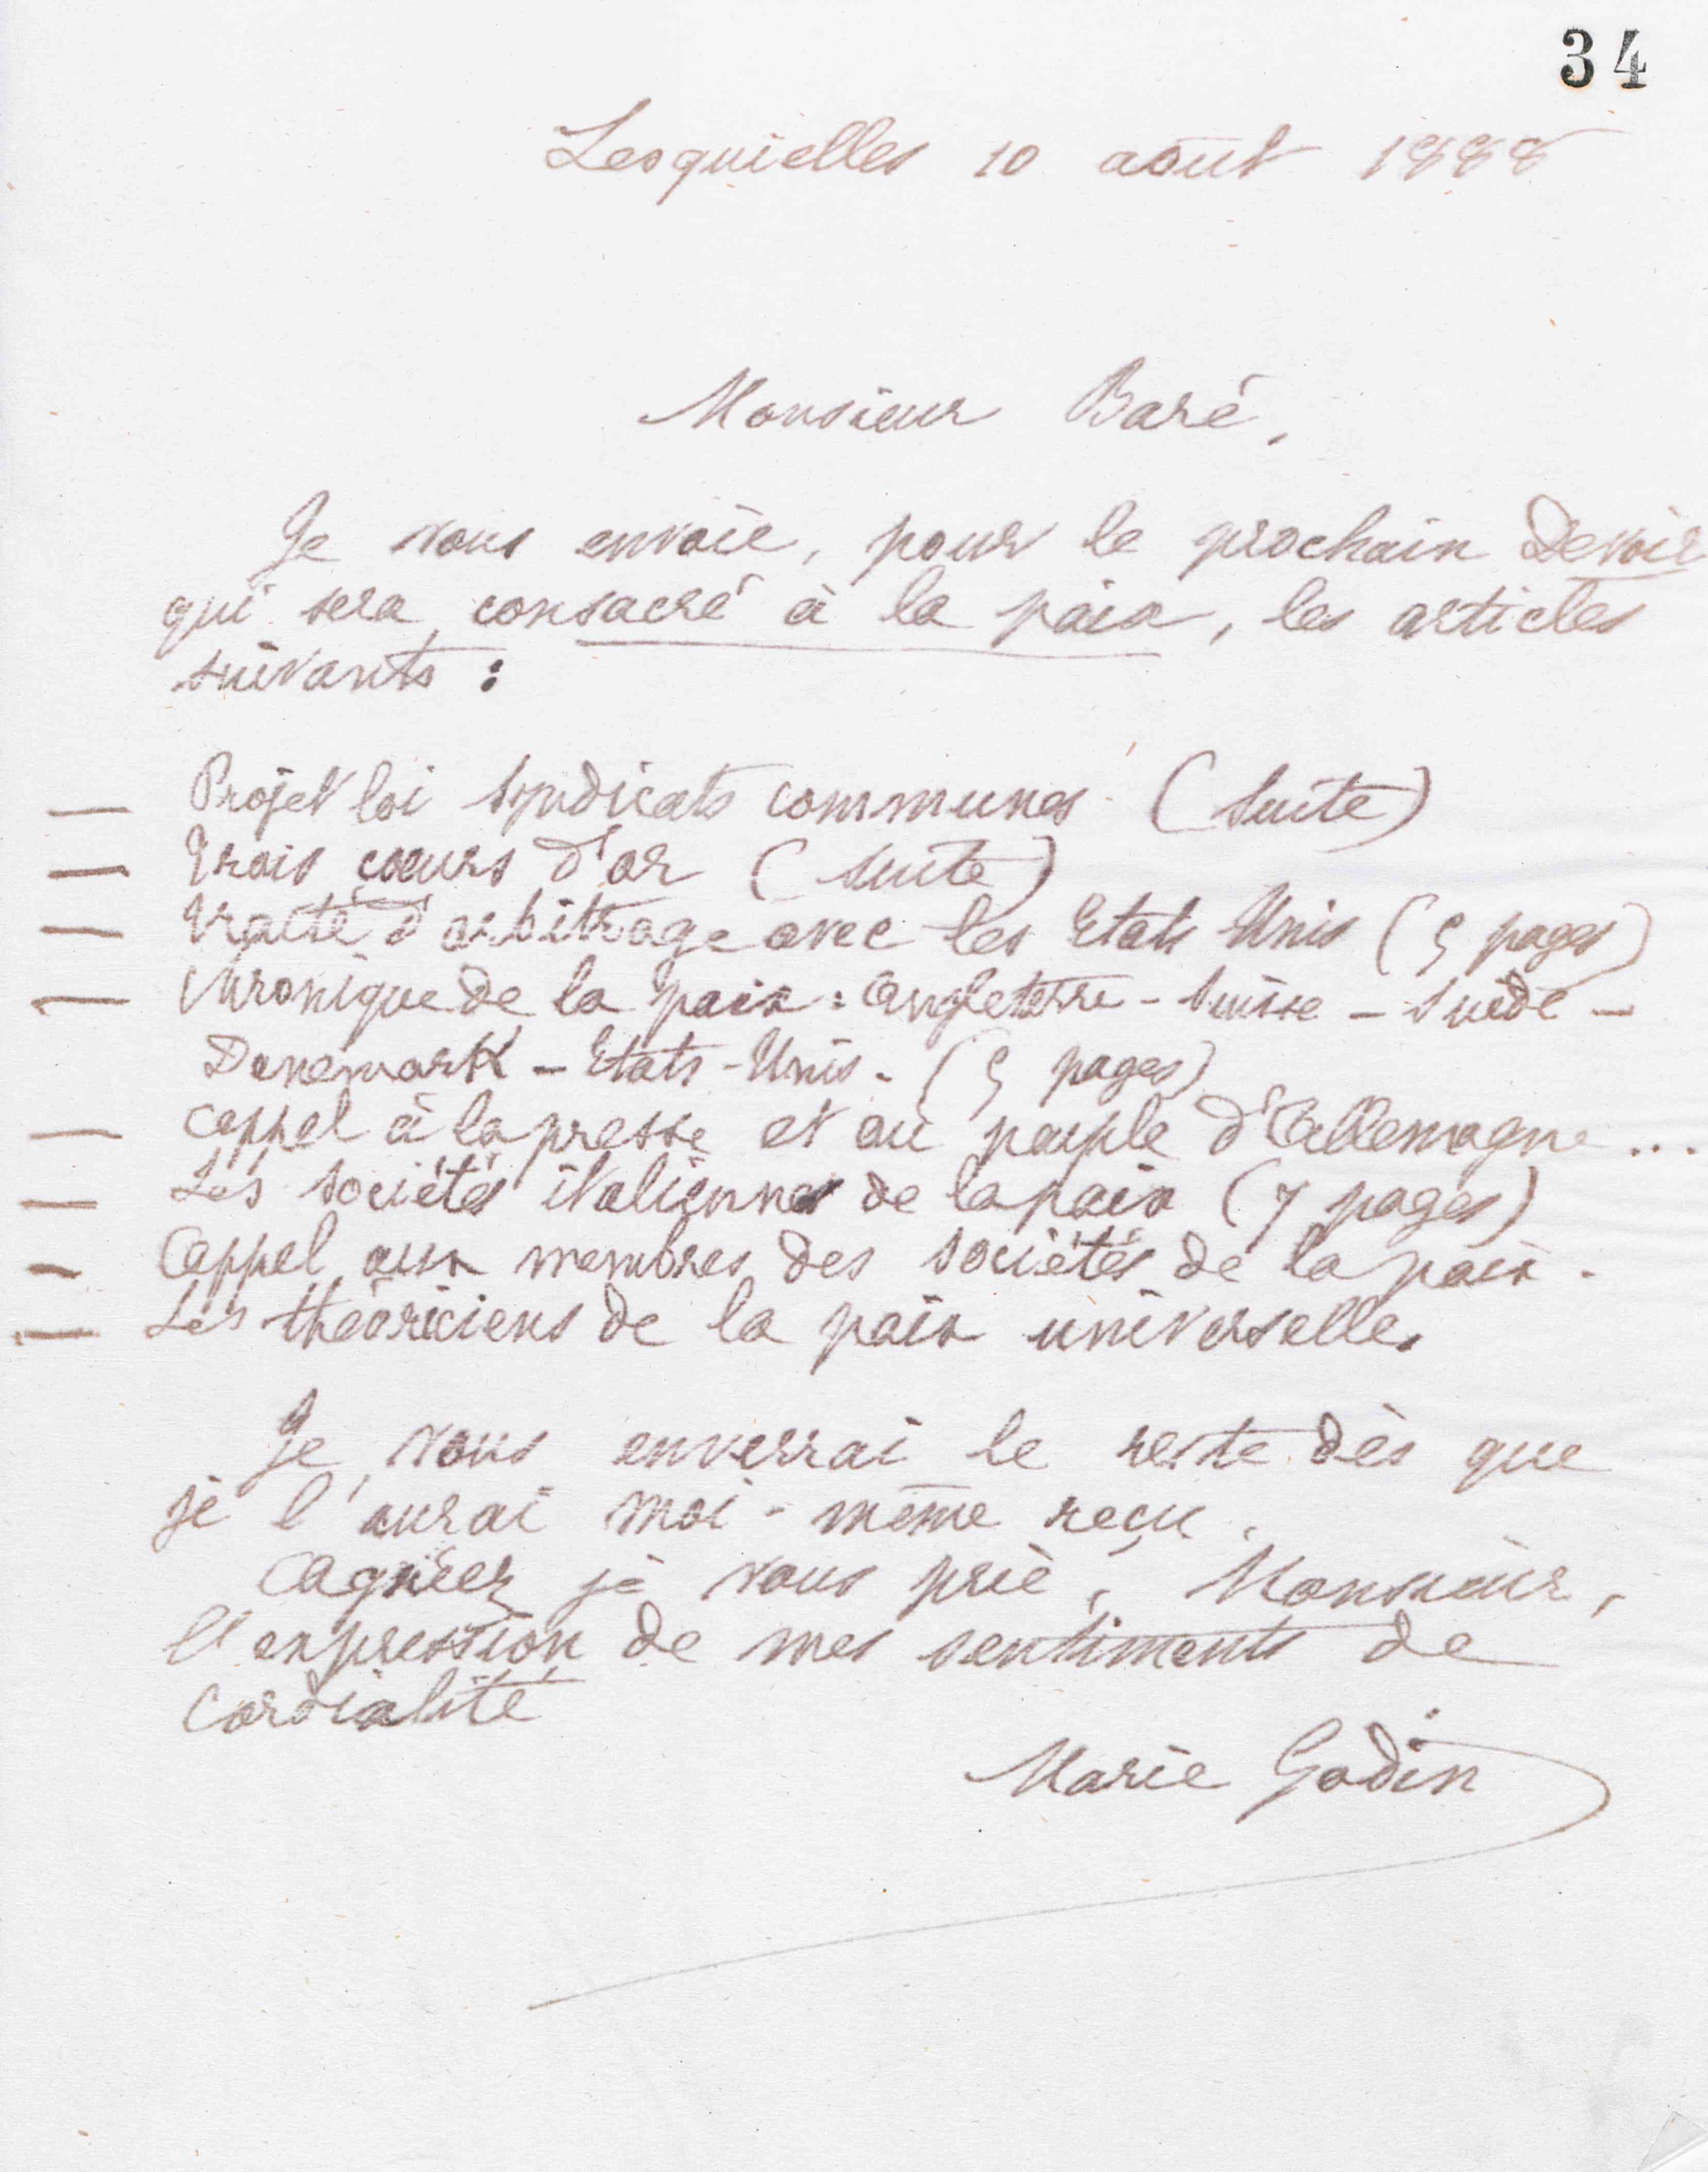 34
Lesquielles 10 août 1888
Monsieur Baré,
Je vous envoie, pour le prochain Devoir
qui sera consacré à la paix, les articles
suivants :
— Projet loi syndicats communes (suite)
— Trois cœurs d'or (suite)
— Traité d'arbitrage avec les Etats Unis (5 pages)
— Chronique de la paix : Angleterre - Suisse - Suède -
Danemark - Etats-Unis - (5 pages)
— Appel à la presse et au peuple d'Allemagne ...
— Les sociétés italiennes de la paix (7 pages)
— Appel aux membres des sociétés de la paix.
— Les théoriciens de la paix universelle.
Je vous enverrai le reste dès que
je l'aurai moi-même reçu.
Agréez je vous prie, Monsieur,
l'expression de mes sentiments de
cordialité
Marie Godin